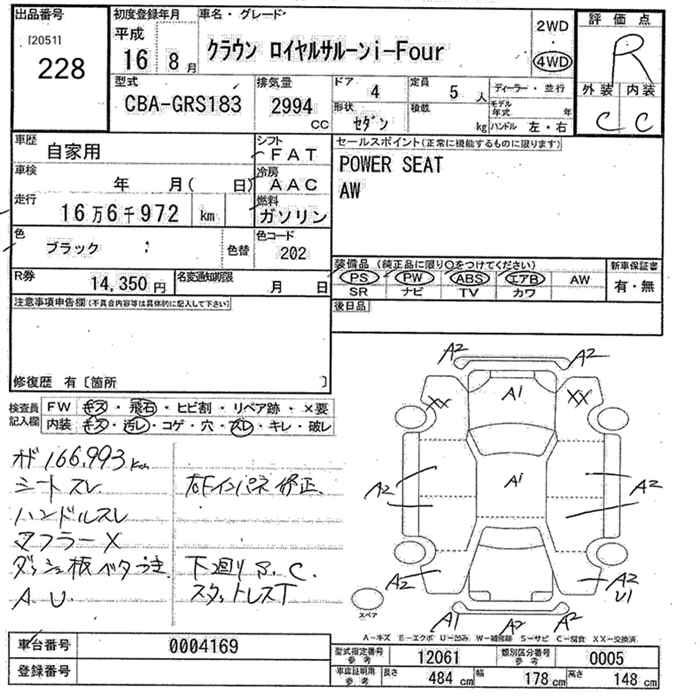 出品番号
[2051]
228
初度登録年月
平成
16 8月
車名・グレード
クラウン ロイヤルサルーンi-Four
2WD
4WD
評価点
R
外装 内装
C C
型式
CBA-GRS183
排気量
2994 CC
ドア 4
定員 5 人
形状 セダン
積載 kg
ディーラー・並行
モデル年式 年
ハンドル 左・右
車歴 自家用
シフト FAT
車検 年 月( 日)
冷房 AAC
走行 16万6千972 km
燃料 ガソリン
色 ブラック
色替
色コード 202
R券 14,350円
名変通知期限 月 日
セールスポイント(正常に機能するものに限ります)
POWER SEAT
AW
装備品(純正品に限り○をつけてください)
PS PW ABS エアB AW
SR ナビ TV カワ
新車保証書
有・無
後日品
注意事項申告欄(不具合内容等は具体的に記入して下さい)
修復歴 有[箇所 ]
検査員記入欄
FW キズ・飛石・ヒビ割・リペア跡・×要
内装 キズ・汚レ・コゲ・穴・スレ・キレ・破レ
オド 166,993km
シートスレ
右Fインパネ修正
ハンドルスレ
マフラーX
ダッシュ板ベタつき
下廻りS、C
A.U.
スタットレスT
A2 A2
XX A1 XX
A2 A1 A2
A2 A2
U1
A1 A2 A2
スペア
A-キズ E-エクボ U-凹み W-補修跡 S-サビ C-腐食 XX-交換済
車台番号 0004169
登録番号
型式指定番号 参考 12061
類別区分番号 参考 0005
車庫証明用 参考 長さ 484 cm 幅 178 cm 高さ 148 cm